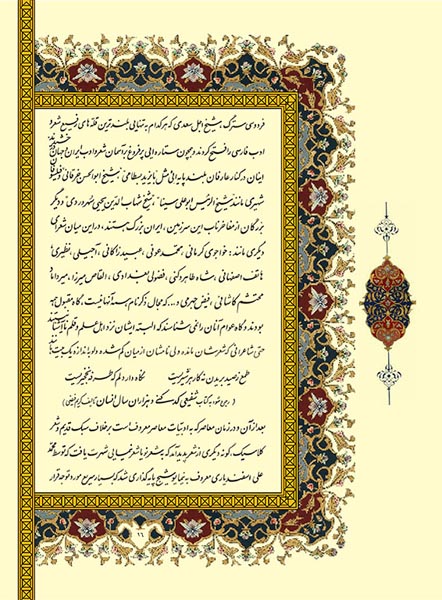 فردوسی سترگ، شیخ اجل سعدی که هرکدام به تنهایی بلندترین قله‌های رفیع شعر و
ادب فارسی را فتح کردند و همچون ستاره‌ای پرفروغ بر آسمان شعر و ادب ایران و جهان
اینان در کنار عارفان بلندپایه‌ای مثل بایزید بسطامی، شیخ ابوالحسن خرقانی و فیلسوفان
شهیری مانند شیخ الرئیس ابوعلی سینا، شیخ شهاب الدین یحیی سهروردی و دیگر
بزرگان از مفاخر ناب این سرزمین، ایران بزرگ هستند، در این میان شعرای
دیگری مانند: خواجوی کرمانی، محتد عوفی، عبید زاکانی، آجیلی، نظیری
هاتف اصفهانی، شاه طاهر دکنی، فضولی بغدادی، القاص میرزا، میرداماد
محتشم کاشانی، فیض جهرمی و... که مجال ذکر نام همه آنها نیست، گاه مقبول
بودند و گاه عوام آنان را نمی شناسند که البته ایشان نزد اهل علم و قلم
حتی شاعرانی که شعرشان مانده ولی نامشان از میان گم شده ولو به اندازه یک بیت
طمع ز صید بریدن نه کار هر شیریست نگاه دار دلم که طرفه نخجیریست
(رجوع شود به کتاب شفیعی کدکنی و هزاران سال انسان
بعد از آن و در زمان معاصر که به ادبیات معاصر معروف است برخلاف سبک قدیم و شعر
کلاسیک، گونه دیگری از شعر پدید آمد که به شعر نو یا شعر نیمایی شهرت یافت که توسط
علی اسفندیاری معروف به نیما یوشیج پایه گذاری شد که بسیار سریع مورد توجه قرار
۱۶